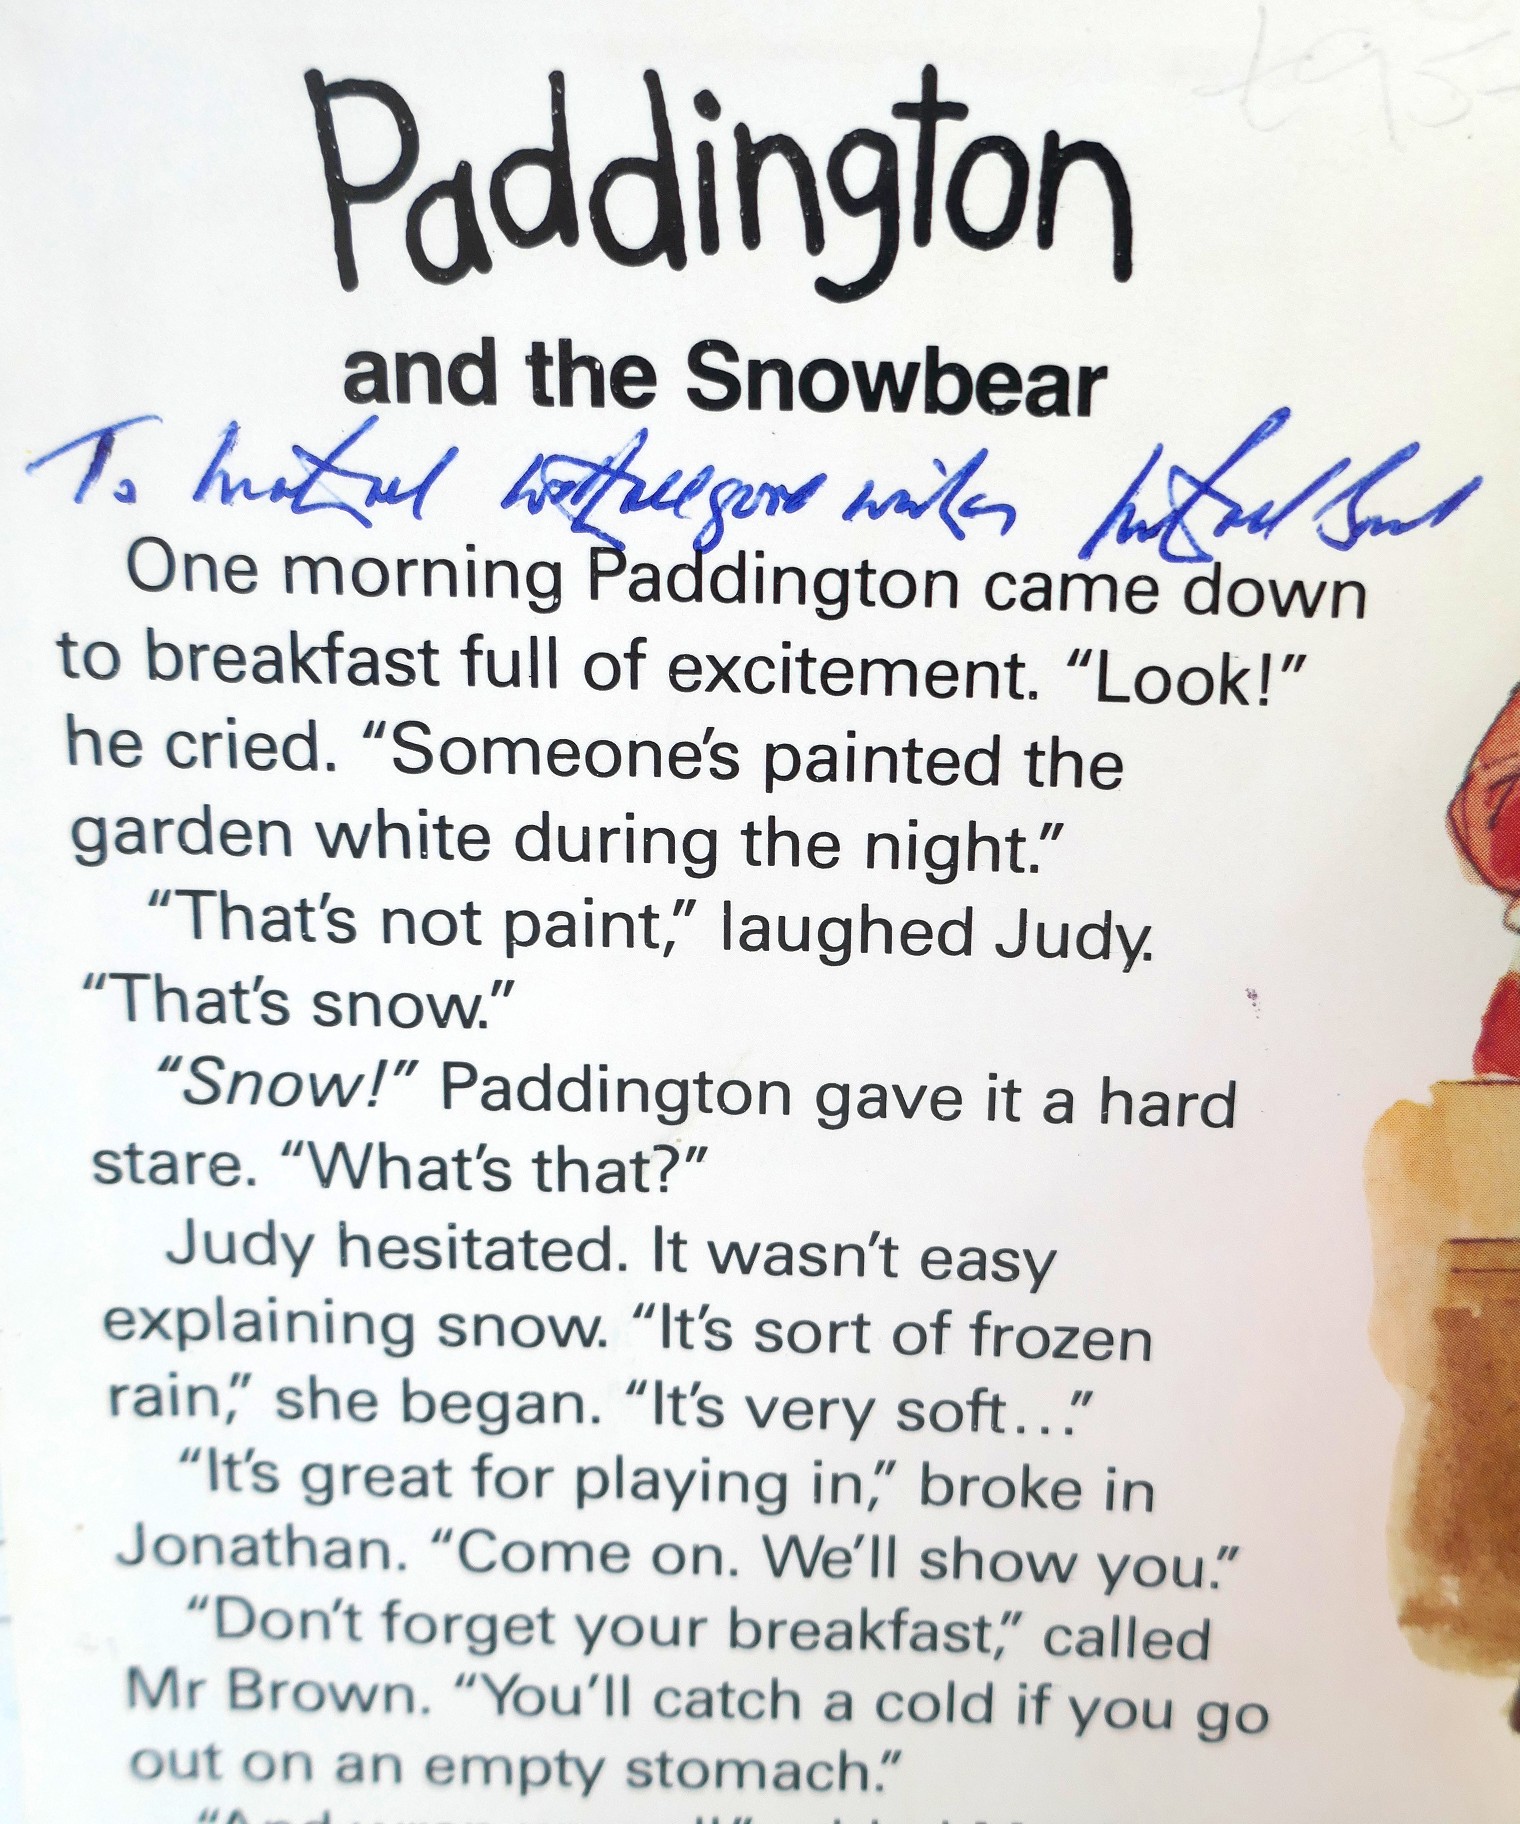 £95-
Paddington
and the Snowbear
To Michael with all good wishes Michael Bond
One morning Paddington came down
to breakfast full of excitement. “Look!”
he cried. “Someone’s painted the
garden white during the night.”
“That’s not paint,” laughed Judy.
“That’s snow.”
“Snow!” Paddington gave it a hard
stare. “What’s that?”
Judy hesitated. It wasn’t easy
explaining snow. “It’s sort of frozen
rain,” she began. “It’s very soft…”
“It’s great for playing in,” broke in
Jonathan. “Come on. We’ll show you.”
“Don’t forget your breakfast,” called
Mr Brown. “You’ll catch a cold if you go
out on an empty stomach.”